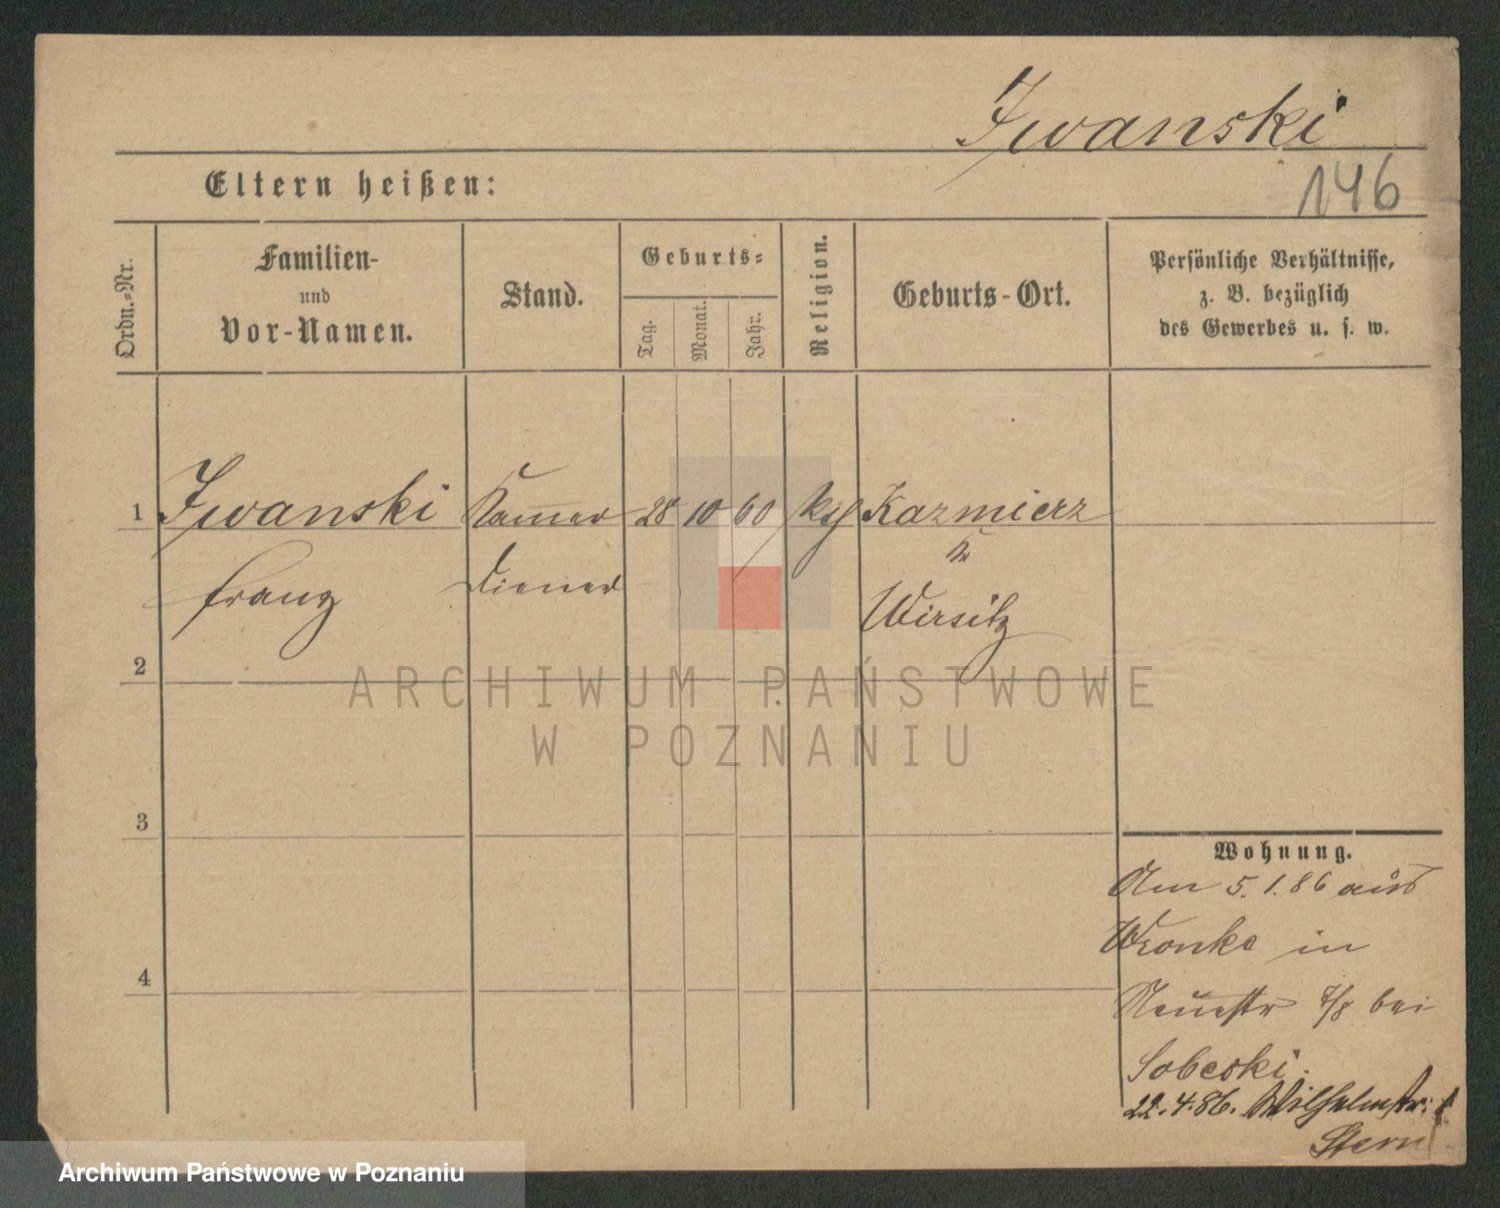 Iwanski
146
Eltern heißen:
Ordn.-Nr.
Familien-
und
Vor-Namen.
Stand.
Geburts-
Tag.
Monat.
Jahr.
Religion.
Geburts-Ort.
Persönliche Verhältnisse,
z. B. bezüglich
des Gewerbes u. s. w.
1 Iwanski 28 10 60 Kazmierz
Franz Diener
Wirsitz
2
ARCHIWUM PAŃSTWOWE
W POZNANIU
3
4
Wohnung.
Am 5.1.86 aus
Wronke in
Neuestr 7/8 bei
Sobeski.
22.4.86. Wilhelmstr. 1
Stern
Archiwum Państwowe w Poznaniu